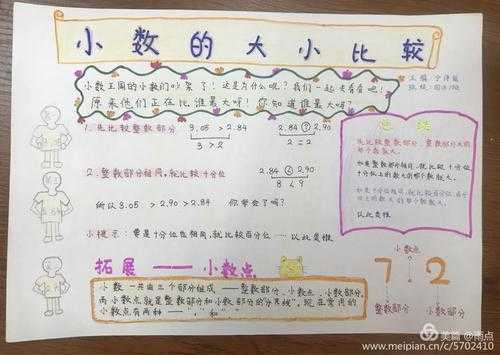 小数的大小比较
主编
班级:四(1)班
小数王国的小数们吵架了!这是为什么呢?我们一起去看看吧!
原来他们正在比谁最大呀!你知道谁最大吗?
1.先比较整数部分
3.05 > 2.84
3 > 2
2.84 < 2.90
2 = 2
2.整数部分相同,就比较十分位
2.84 < 2.90
8 < 9
所以3.05 > 2.90 > 2.84 你学会了吗?
小提示:要是十分位也相同,就比较百分位……以此类推
总结
先比较整数部分,整数部分大的
那个数就大。
如果整数部分相同,就比较十分位
十分位上的数大的那个数就大。
如果十分位相同,就比较百分位,百分
位上的数大的那个数就大。
以此类推
拓展——小数点
小数一共由三个部分组成——整数部分、小数点、小数部分。
而小数点就是整数部分和小数部分的“分界线”。现在常用的
小数点有两种——“.”和“,”
小数点
7.2
整数部分
小数部分
美篇@雨点
www.meipian.cn/c/5702410